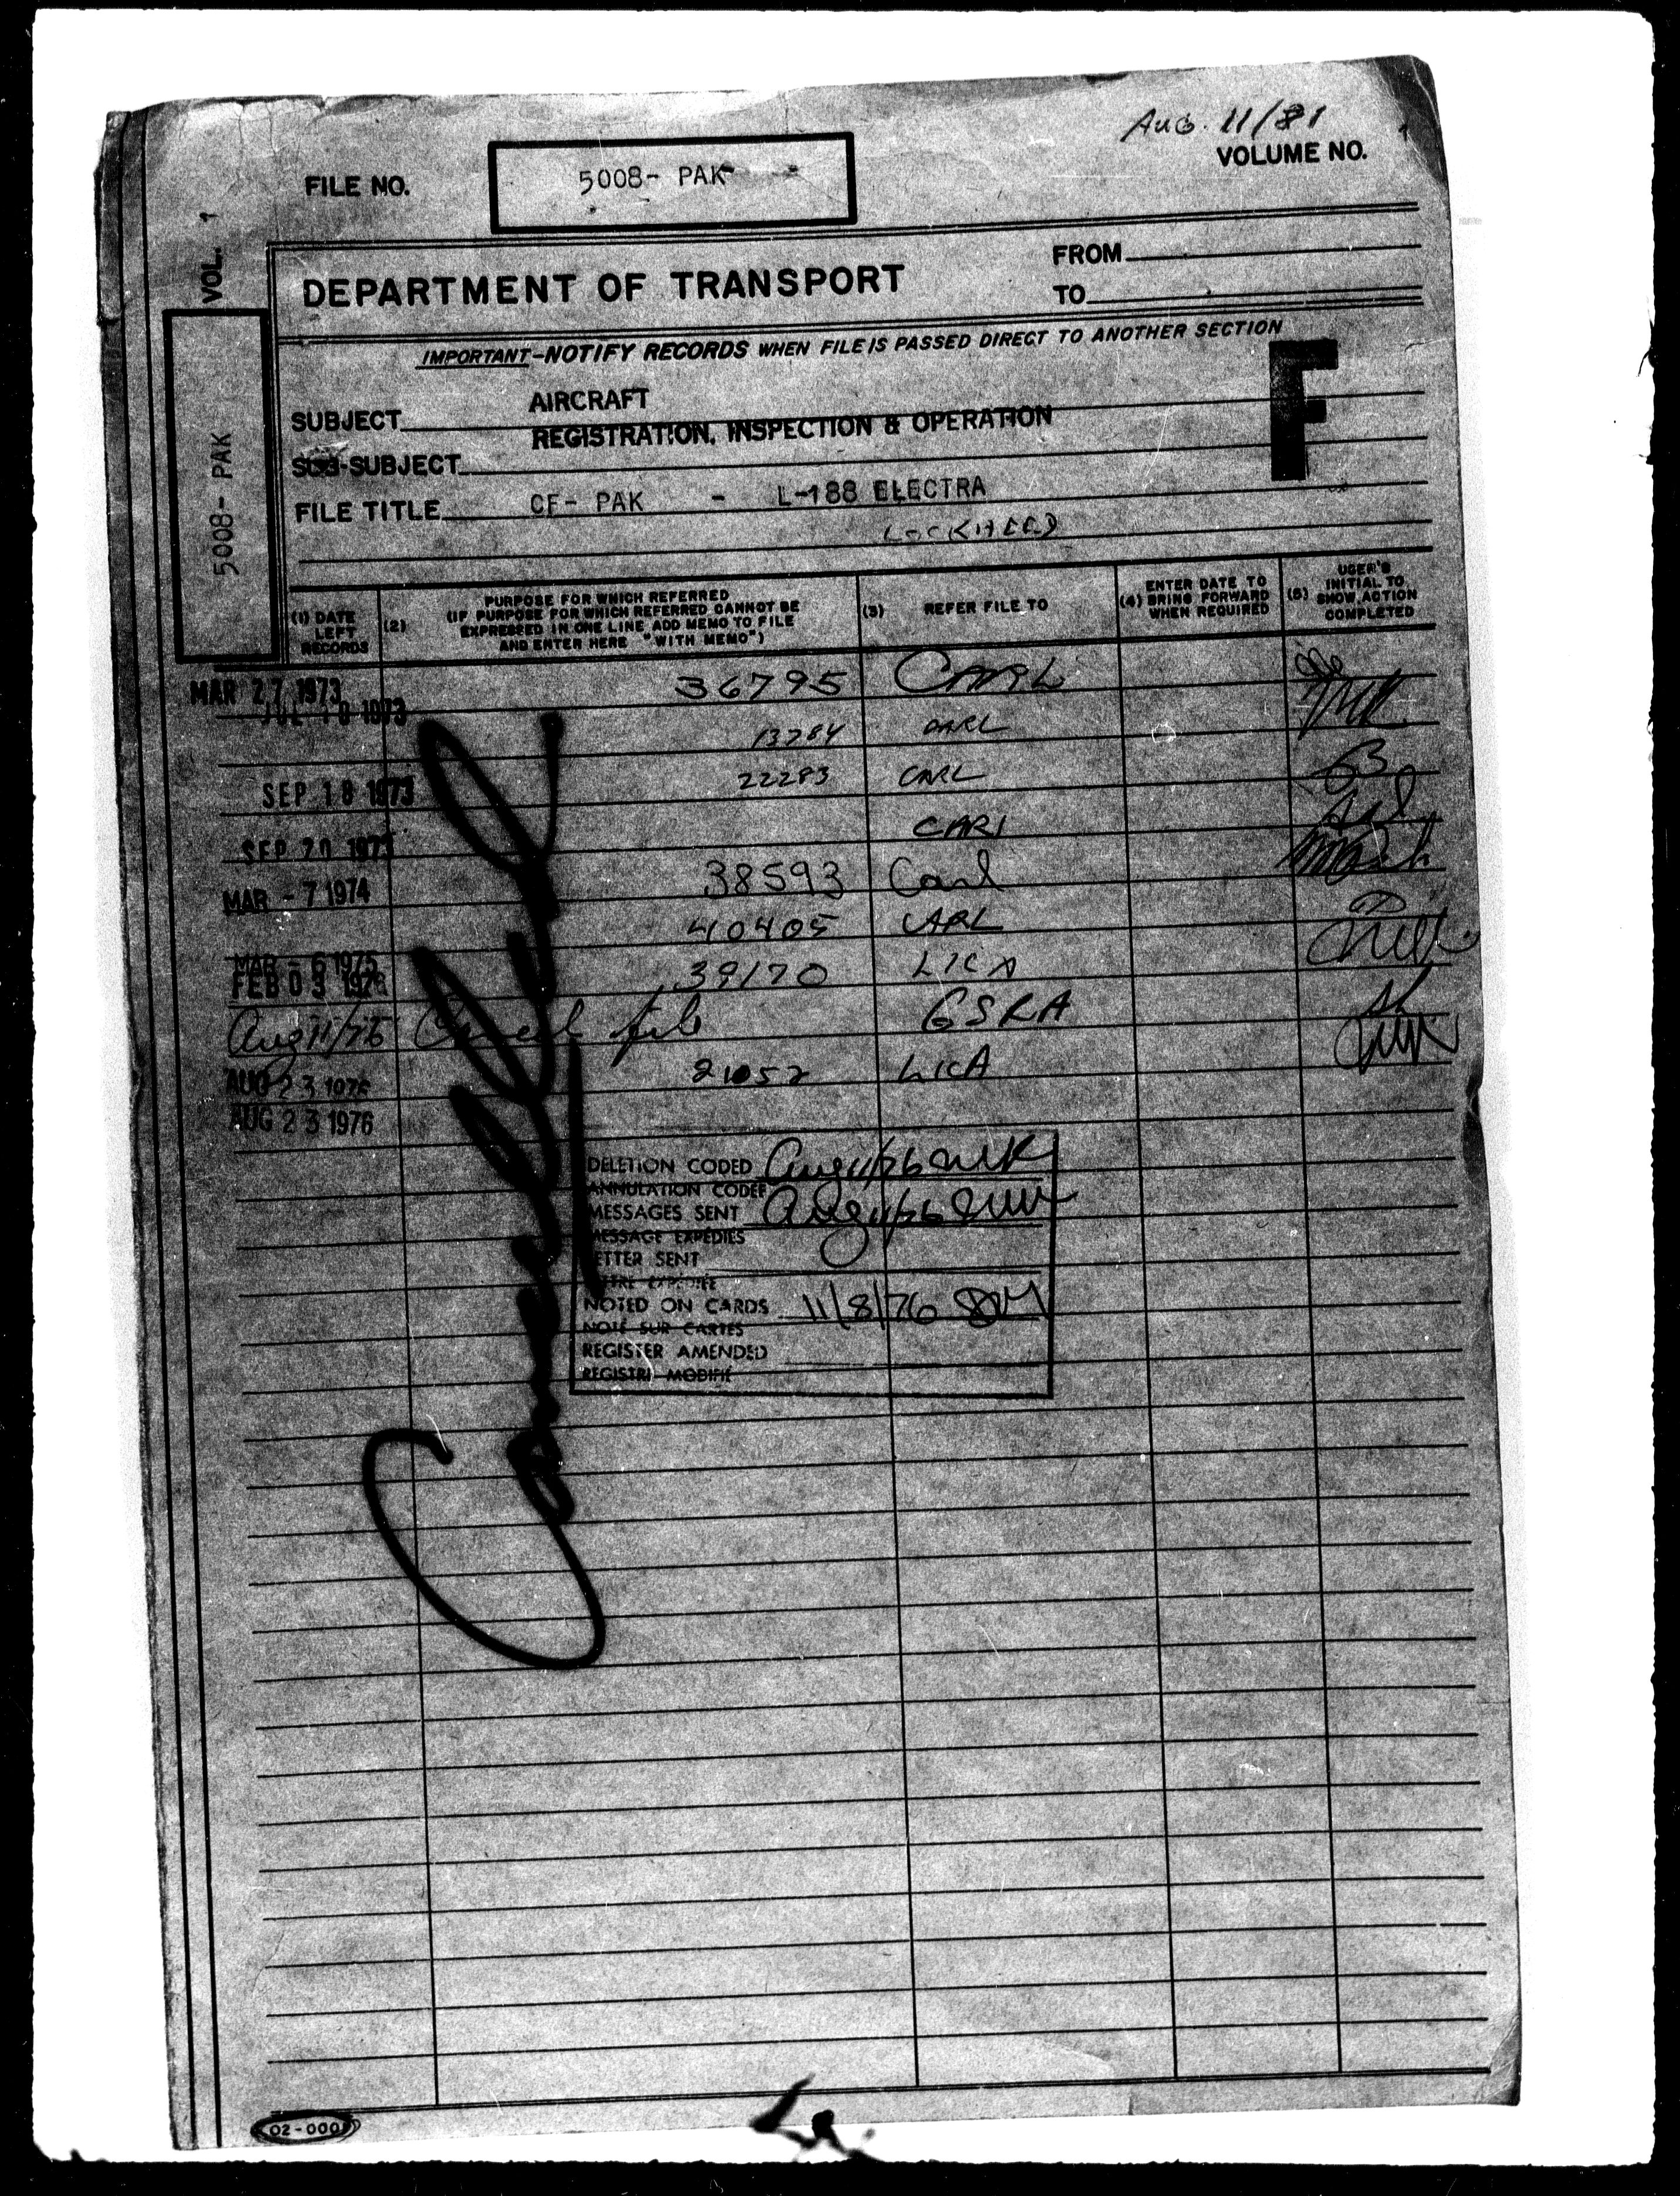 AUG. 11/81
VOLUME NO. 1
FILE NO. 5008- PAK
VOL. 1
5008- PAK
DEPARTMENT OF TRANSPORT
FROM
TO
IMPORTANT-NOTIFY RECORDS WHEN FILE IS PASSED DIRECT TO ANOTHER SECTION
F
SUBJECT AIRCRAFT
REGISTRATION, INSPECTION & OPERATION
SUB-SUBJECT
FILE TITLE CF- PAK - L-188 ELECTRA
LOCKHEED
(1) DATE LEFT RECORDS
(2) PURPOSE FOR WHICH REFERRED
(IF PURPOSE FOR WHICH REFERRED CANNOT BE
EXPRESSED IN ONE LINE ADD MEMO TO FILE
AND ENTER HERE "WITH MEMO")
(3) REFER FILE TO
(4) ENTER DATE TO BRING FORWARD WHEN REQUIRED
(5) USER'S INITIAL TO SHOW ACTION COMPLETED
MAR 27 1973 36795 CARL
JUL 18 1973 13784 CARL
22283 CARL
SEP 18 1973
CARL
SEP 20 1973
38593 Carl
MAR - 7 1974
40405 CARL
MAR - 6 1975
39170 LICA
FEB 03 1976
Aug 11/76 Cancel file GSRA
AUG 23 1976 21052 LICA
AUG 23 1976
Cancelled
DELETION CODED Aug 11/76
ANNULATION CODÉE
MESSAGES SENT Aug 11/76
MESSAGE EXPEDIÉS
LETTER SENT
LETTRE EXPÉDIÉE
NOTED ON CARDS 11/8/76
NOTÉ SUR CARTES
REGISTER AMENDED
REGISTRE MODIFIÉ
02-0005